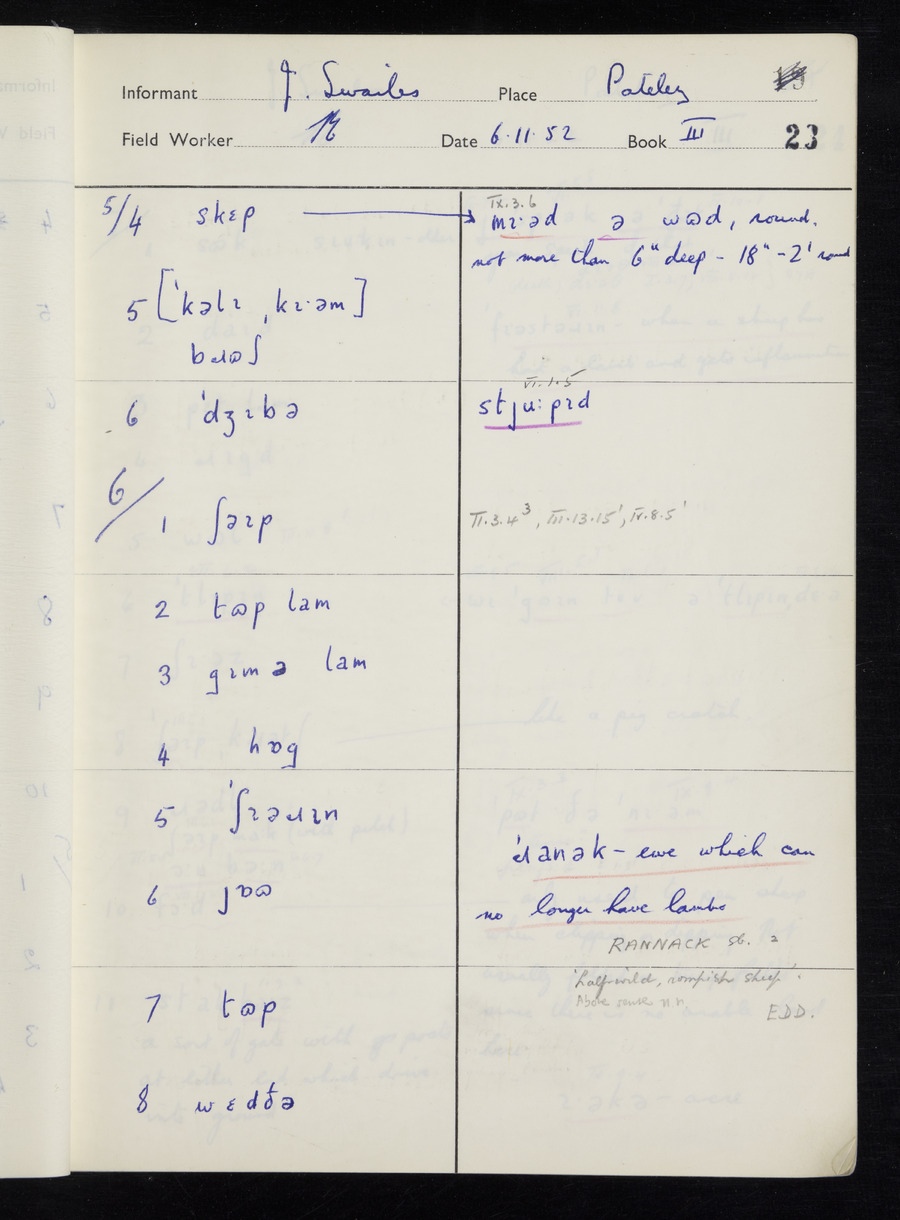 Informant J. Swailes Place Pateley
Field Worker Date 6.11.52 Book III 23
5/4 skɛp
IX.3.6
mɪ·əd ə wɷd, round.
not more than 6" deep - 18" - 2' round
5 [ˈkəlɪ ˌkɹɪ·əm]
bɹɷʃ
6 ˈdʒɪbə
VI.1.5
stju:pɪd
6/1 ʃəɪp
II.3.4³, III.13.15', IV.8.5'
2 tɷp lam
3 gɪmə lam
4 hɒg
5 ˈʃɪəɹɪn
ˈɹanək - ewe which can
6 jɒɷ
no longer have lambs
RANNACK sb. 2
half-wild, rompish sheep.
EDD.
7 tɷp
8 wɛdðə